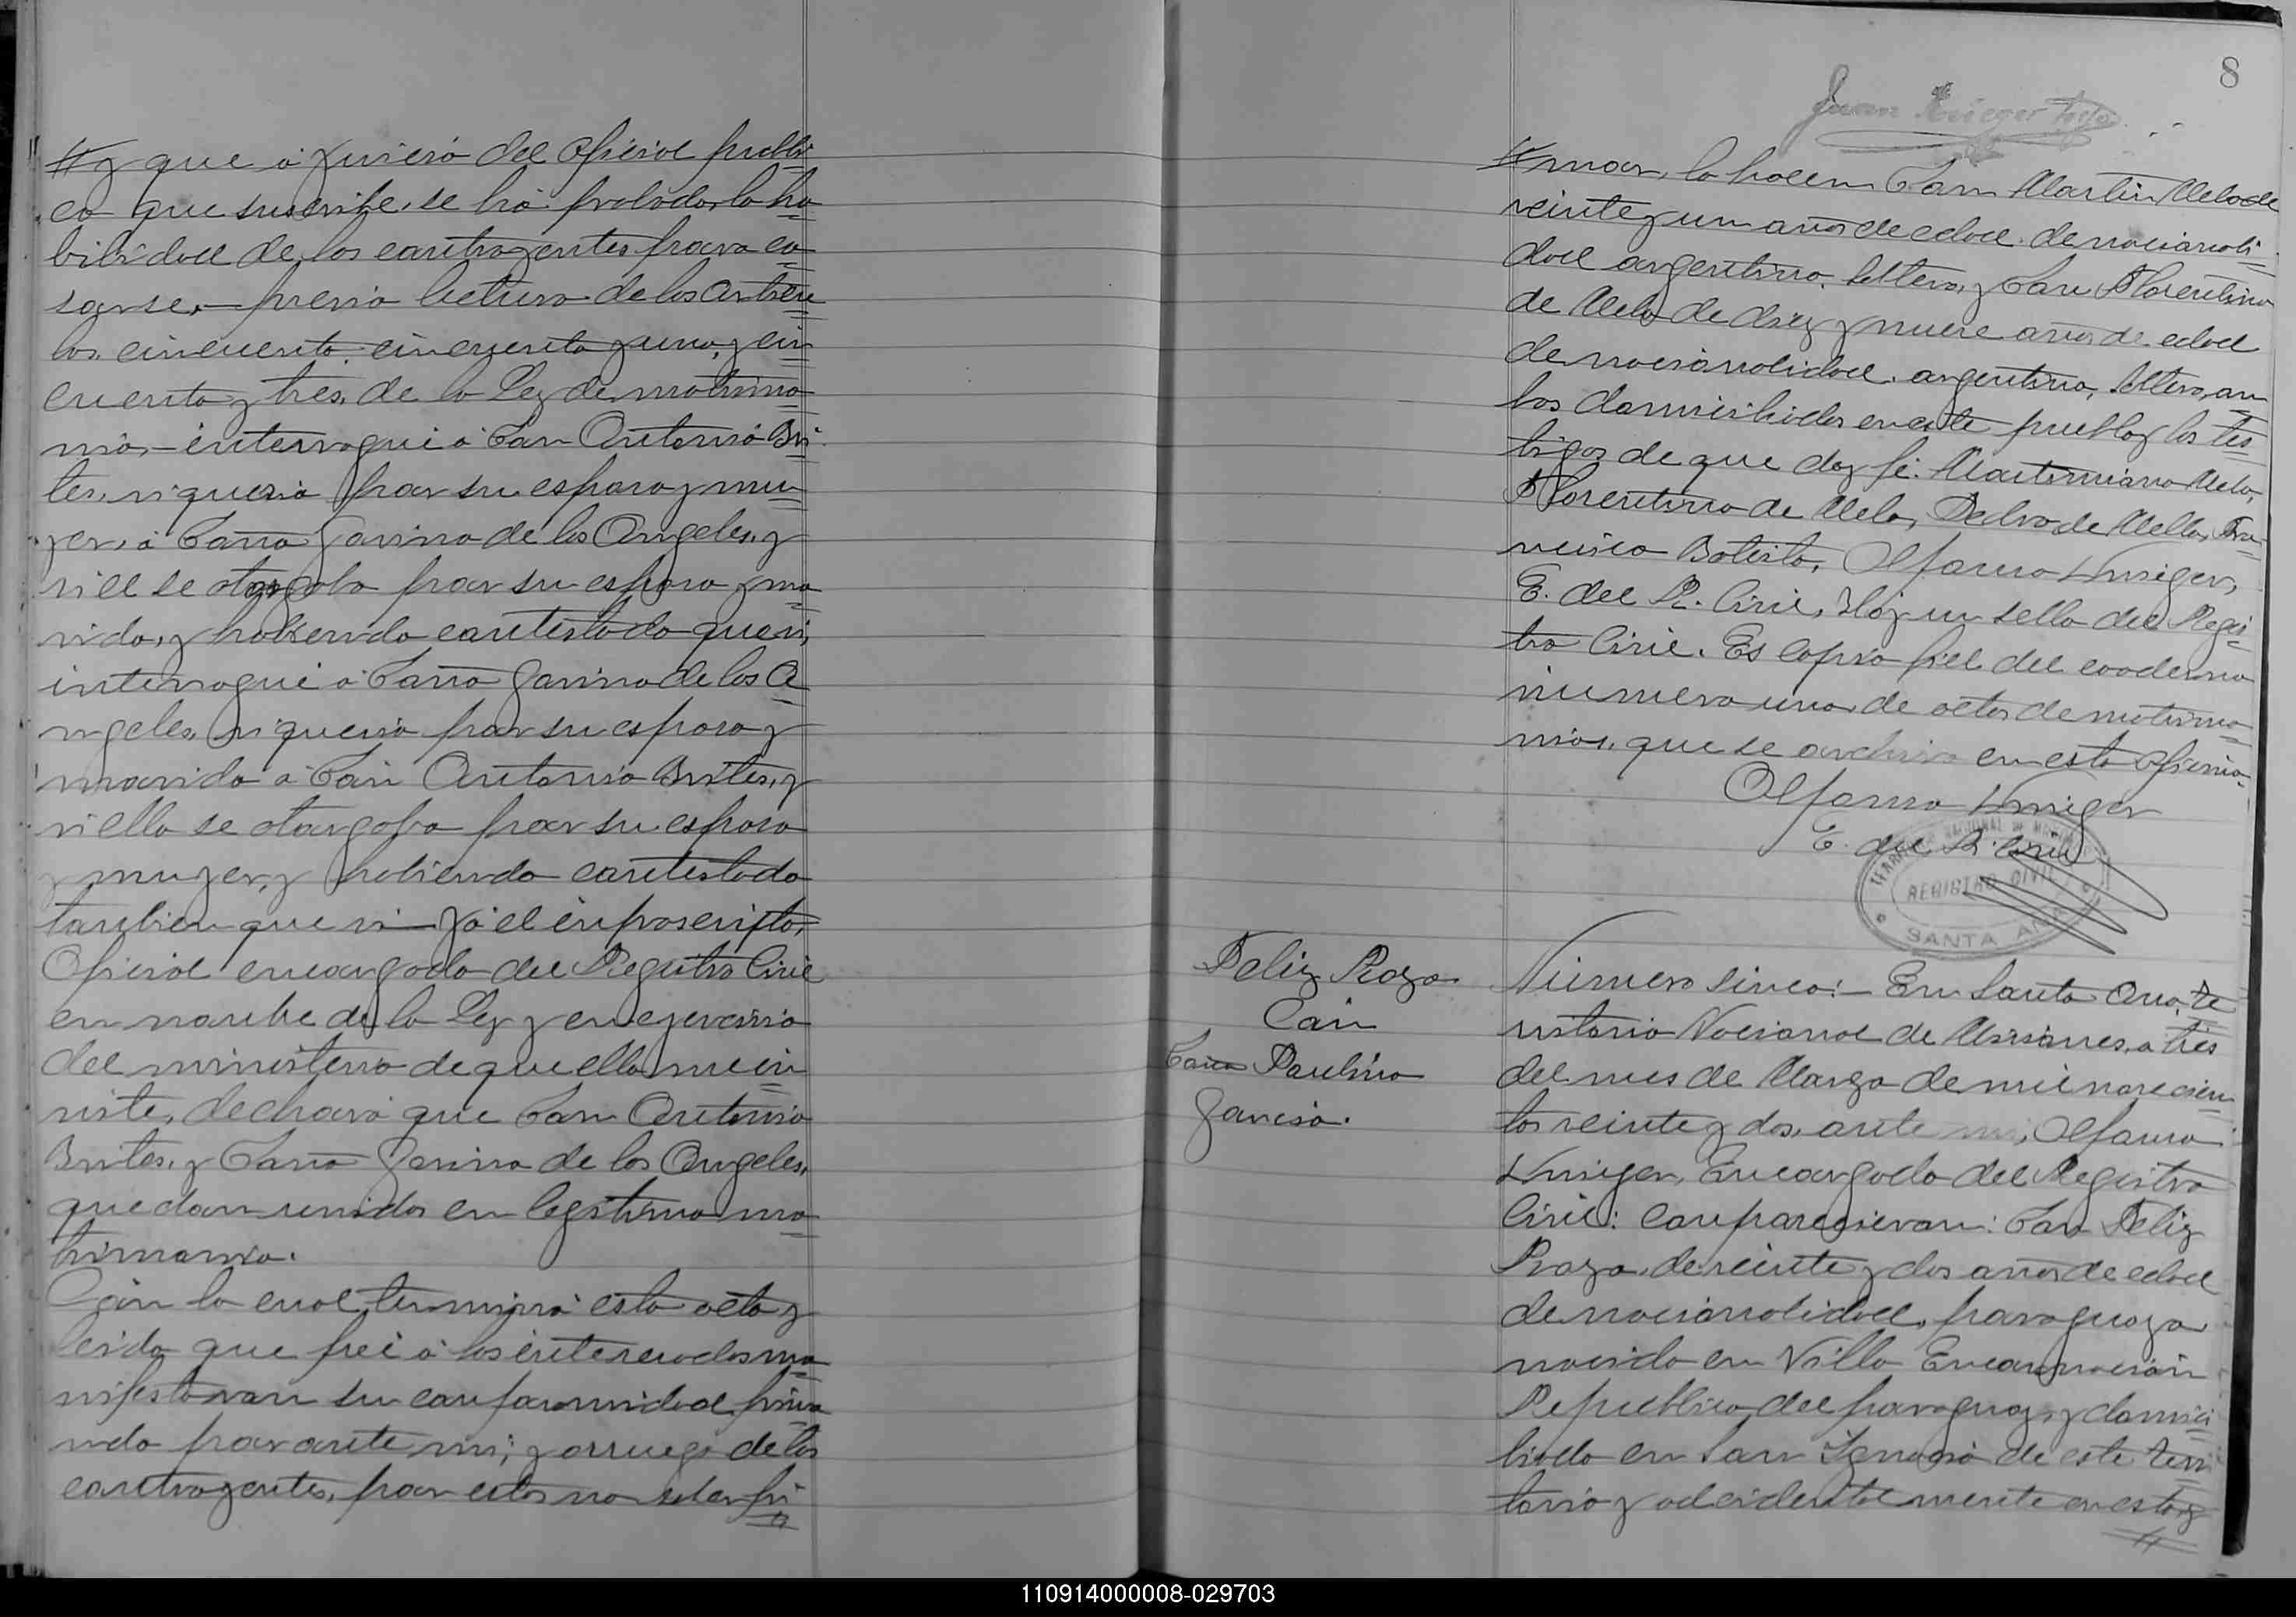 y que á juicio del oficial públi
co que suscribe, se há probado, la ha
bilidad de los contrayentes para ca
sarse,- previa lectura de los artícu
los, cincuenta, cincuenta y uno, y cin
cuenta y tres, de la Ley de matrimo
nio,- interrogué á Don Antonio Bri
tes, si queria por su esposa y mu
jer, á Doña Janina de los Angeles, y
si el se otorgaba por su esposo y ma
rido, y habiendo contestado que si,
interrogué á Doña Janina de los A
ngeles, si queria por su esposo y
marido á Don Antonio Brites, y
si ella se otorgaba por su esposa
y mujer, y habiendo contestado
tambien que si – Yó el infroscripto,
Oficial encargado del Registro Civil
en nombre de la Ley y en ejercicio
del ministerio de que ella me in
viste, declaro que Don Antonio
Brites, y Doña Janina de los Angeles,
quedan unidos en legitimo ma
trimonio.
Con lo cual terminó esta acta y
leida que fué á los interesados ma
nifestaron su conformidad, firma
ndo por ante mi; y á ruego de los
contrayentes, por estos no saber fir
8
mar, lo hacen Don Martin Melo de
veinte y un años de edad, de nacionali
dad argentino, soltero, y Don Florentino
de Melo de diez y nueve años de edad
de nacionalidad, argentino, soltero, am
bos domiciliados en este pueblo y los tes
tigos de que doy fé. Martimiano Melo,
Florentino de Melo, Pedro de Mello, Fra
ncisco Batista, Alfonso Kruger,
E. del R. Civil, Hay un sello del Regis
tro Civil. Es copia fiel del cuaderno
número uno, de actas de matrimo
nios, que se archiva en esta oficina
Alfonso Kruger
E. del R. Civil
REGISTRO CIVIL
SANTA ANA
Feliz
Con
Doña Paulina
Número sinco:- En Santa Ana, te
rritorio Nacional de Misiones, a tres
del mes de Marzo de mil novecien
tos veinte y dos, ante mi, Alfonso
Kruger, Encargado del Registro
Civil: Comparecieron: Don Feliz
de veinte y dos años de edad
de nacionalidad, paraguayo
nacido en Villa Encarnación
República del paraguay, y domici
liado en San Ignacio de este terri
torio y accidentalmente en esta, y
110914000008-029703